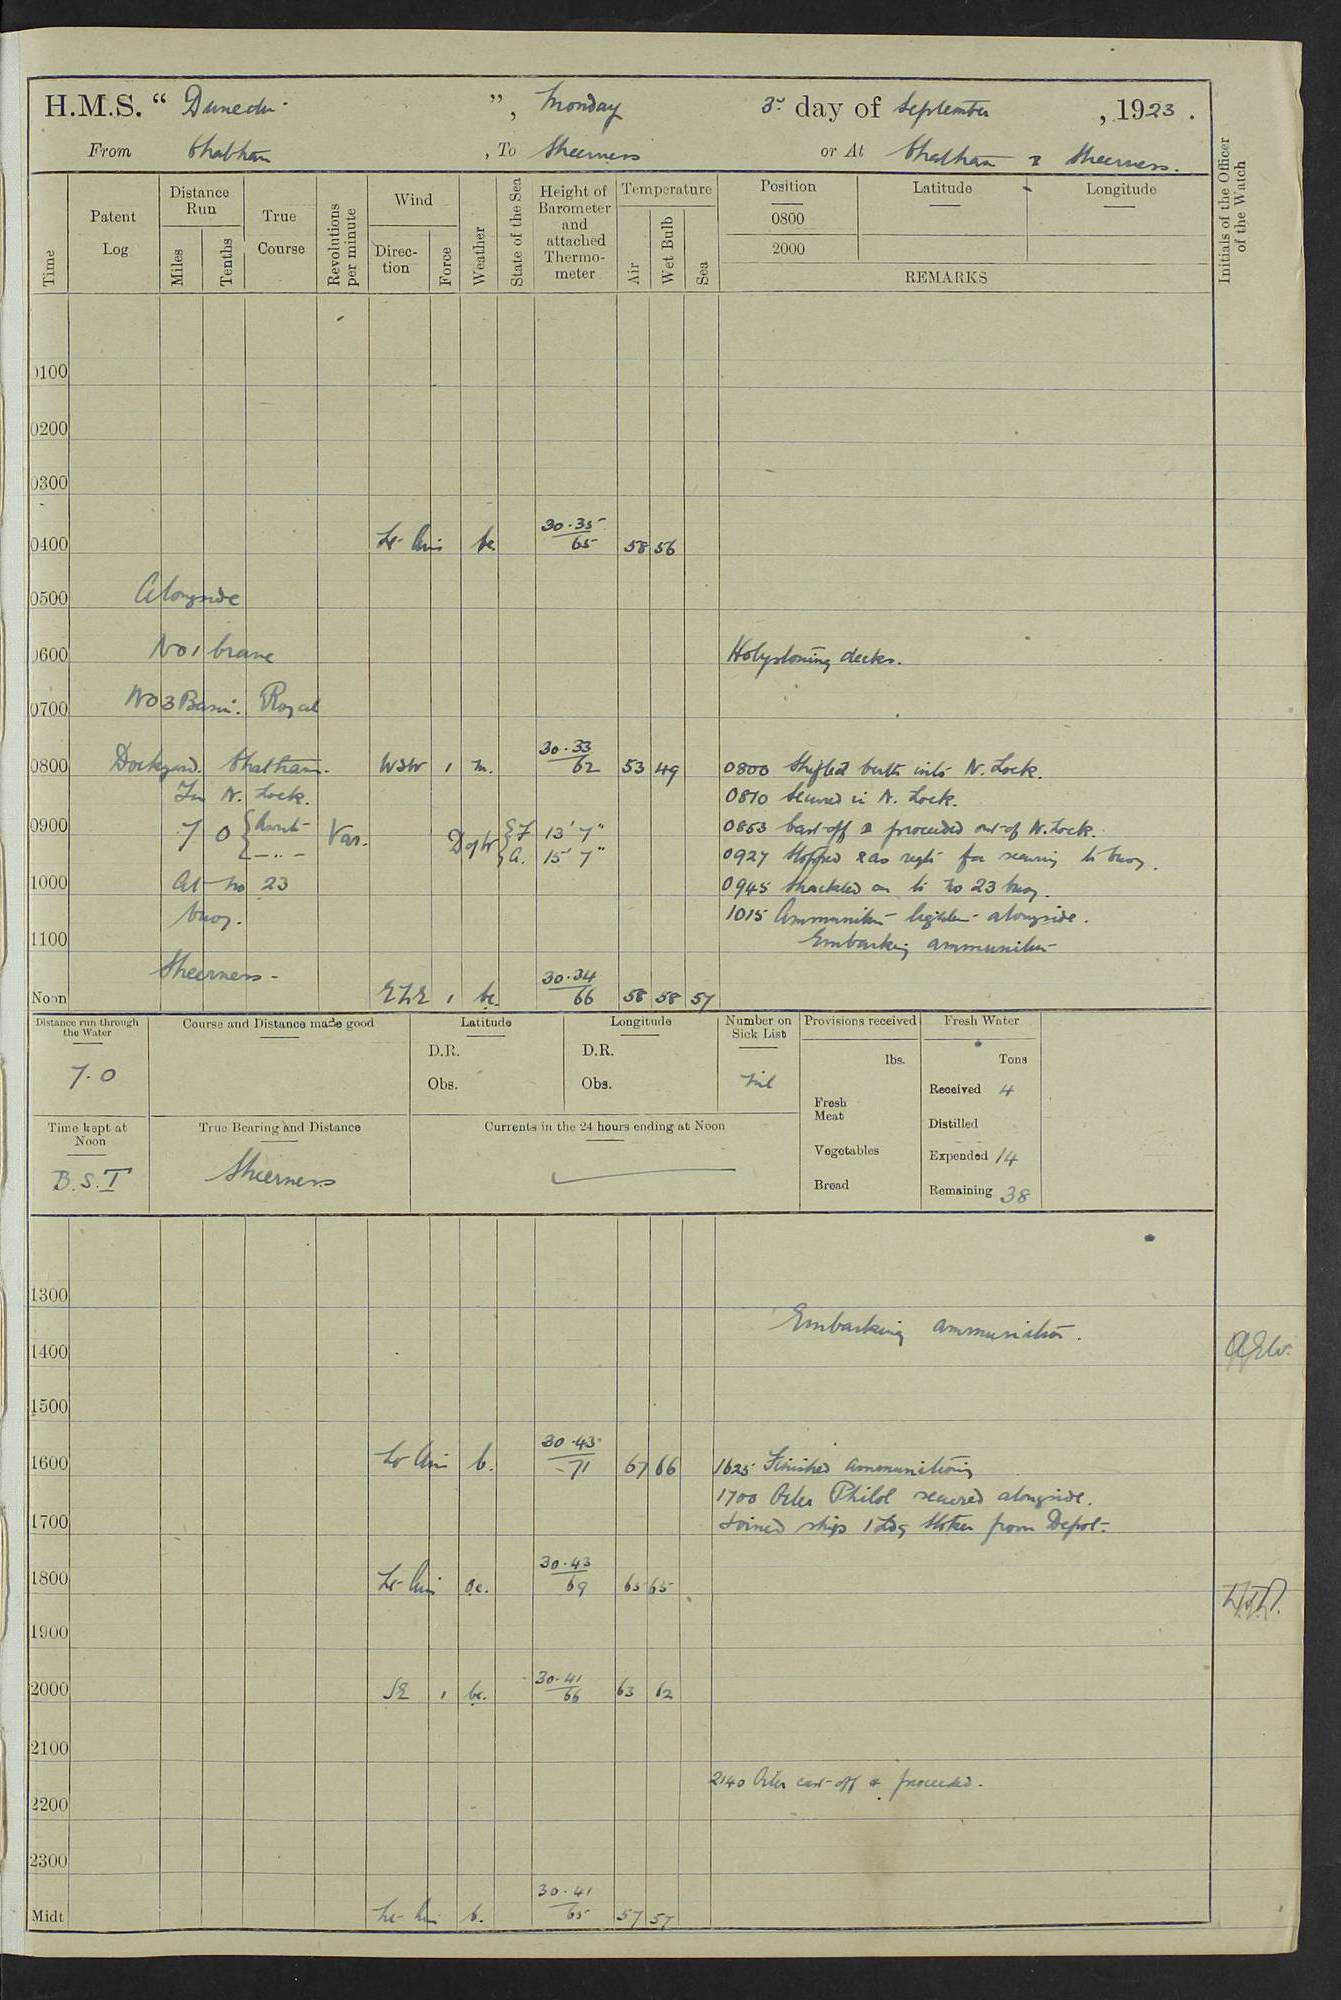 H.M.S. “ Dunedin ”, Monday 3rd day of September, 1923.
From Chatham, To Sheerness or At Chatham & Sheerness.
Initials of the Officer of the Watch
Time
Patent Log
Distance Run
Miles
Tenths
True Course
Revolutions per minute
Wind
Direction
Force
Weather
State of the Sea
Height of Barometer and attached Thermometer
Temperature
Air
Wet Bulb
Sea
Position
0800
2000
Latitude
Longitude
REMARKS
0100
0200
0300
0400 Lt Airs bc 30.35 65 58 56
0500 Alongside
0600 No 1 Crane Holystoning decks.
0700 No 3 Basin. Royal
0800 Dockyard. Chatham. WSW 1 m. 30.33 62 53 49 0800 Shifted berth into N. Lock.
In N. Lock. 0810 Secured in N. Lock.
0900 7 0 Var. D of W F 13' 7" 0853 Cast off & proceeded out of N. Lock.
A. 15' 7" 0927 Stopped & as reqte for securing to buoy.
1000 At No 23 0945 Shackled on to No 23 buoy.
buoy. 1015 Ammunition lighter alongside.
1100 Embarking ammunition
Sheerness.
Noon 1 bc. 30.34 66 58 58 57
Distance run through the Water
7.0
Course and Distance made good
Latitude
D.R.
Obs.
Longitude
D.R.
Obs.
Number on Sick List
Nil
Provisions received
lbs.
Fresh Meat
Vegetables
Bread
Fresh Water
Tons
Received 4
Distilled
Expended 14
Remaining 38
Time kept at Noon
B.S.T
True Bearing and Distance
Sheerness
Currents in the 24 hours ending at Noon
1300
Embarking ammunition.
1400
1500
1600 Lt Airs b. 30.43 71 67 66 1625 Finished ammunitioning
1700 Oiler Philol secured alongside.
1700 Joined ship 1 Ldg Stoker from Depot.
1800 Lt Airs oc. 30.43 69 65 65
1900
2000 SE 1 bc. 30.41 66 63 62
2100
2140 Oiler cast off & proceeded.
2200
2300
Midt Lt Airs b. 30.41 65 57 57